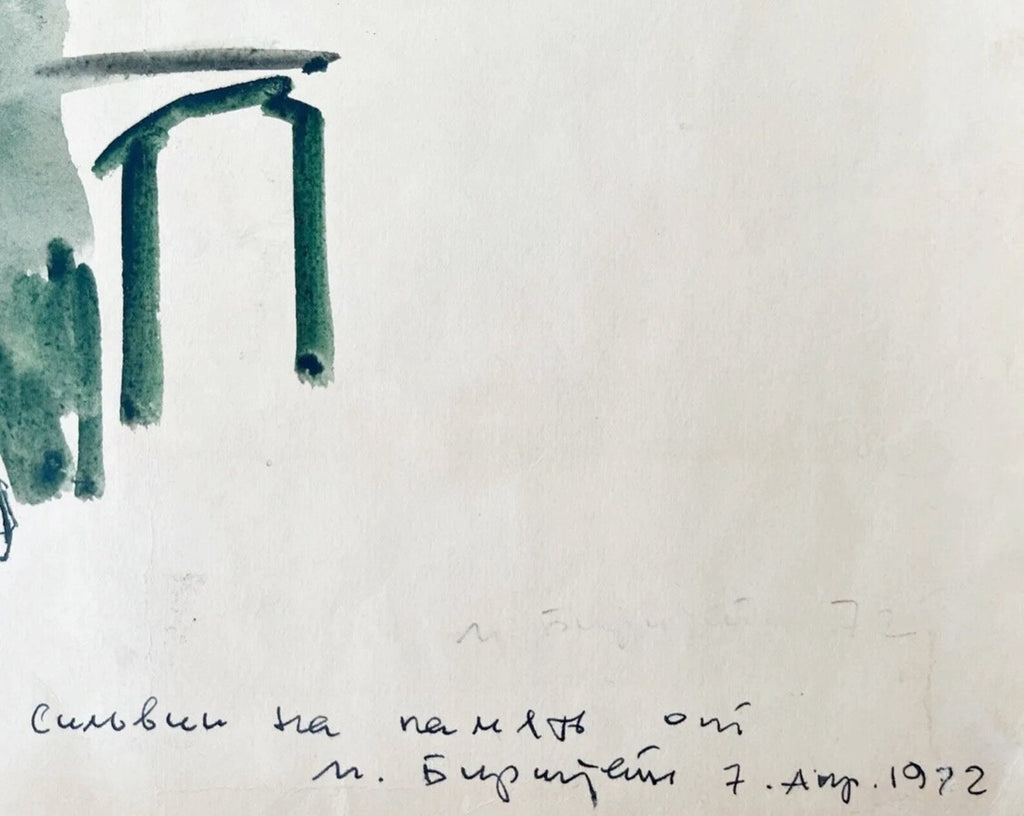 М Бирштейн 72
Сильвии на память от
М. Бирштейн 7. Апр. 1972